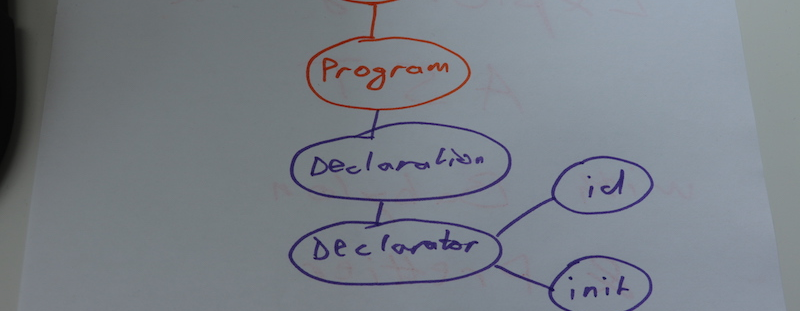 Program
Declaration
id
Declarator
init